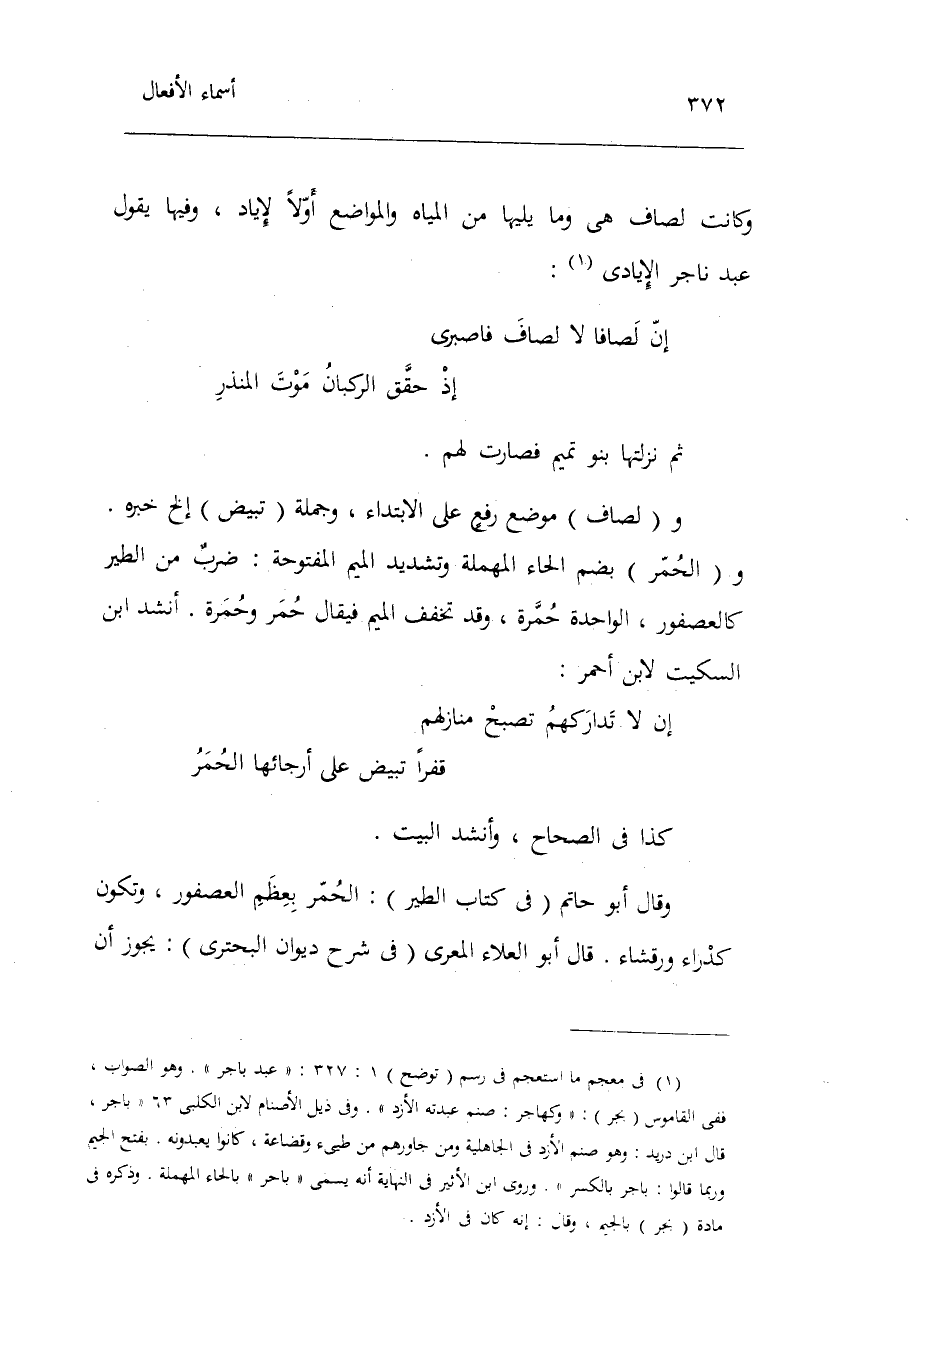 ٣٧٢ أسماء الأفعال
وكانت لصاف هى وما يليها من المياه والمواضع أَوّلاً لإِياد ، وفيها يقول
عبد ناجر الإِيادى (١) :
إنّ لَصافا لا لصافَ فاصبرى
إذْ حقَّق الركبانُ مَوْتَ المنذرِ
ثم نزلتها بنو تميم فصارت لهم .
و ( لصاف ) موضع رفعٍ على الابتداء ، وجملة ( تبيض ) إلخ خبره .
و ( الحُمّر ) بضم الحاء المهملة وتشديد الميم المفتوحة : ضربٌ من الطير
كالعصفور ، الواحدة حُمَّرة ، وقد تخفف الميم فيقال حُمَر وحُمَرة . أنشد ابن
السكيت لابن أحمر :
إن لا تَدارَكهمُ تصبحْ منازلهم
قفراً تبيض على أرجائها الحُمَرُ
كذا فى الصحاح ، وأنشد البيت .
وقال أبو حاتم ( فى كتاب الطير ) : الحُمّر بِعِظَمِ العصفور ، وتكون
كدْراء ورقشاء . قال أبو العلاء المعرى ( فى شرح ديوان البحترى ) : يجوز أن
(١) فى معجم ما استعجم فى رسم ( توضح ) ١ : ٣٢٧ : « عبد باجر » . وهو الصواب ،
ففى القاموس ( بجر ) : « وكهاجر : صنم عبدته الأزد » . وفى ذيل الأصنام لابن الكلبى ٦٣ « باجر ،
قال ابن دريد : وهو صنم الأزد فى الجاهلية ومن جاورهم من طيىء وقضاعة ، كانوا يعبدونه . بفتح الجيم
وربما قالوا : باجر بالكسر » . وروى ابن الأثير فى النهاية أنه يسمى « باحر » بالحاء المهملة . وذكره فى
مادة ( بجر ) بالجيم ، وقال : إنه كان فى الأزد .